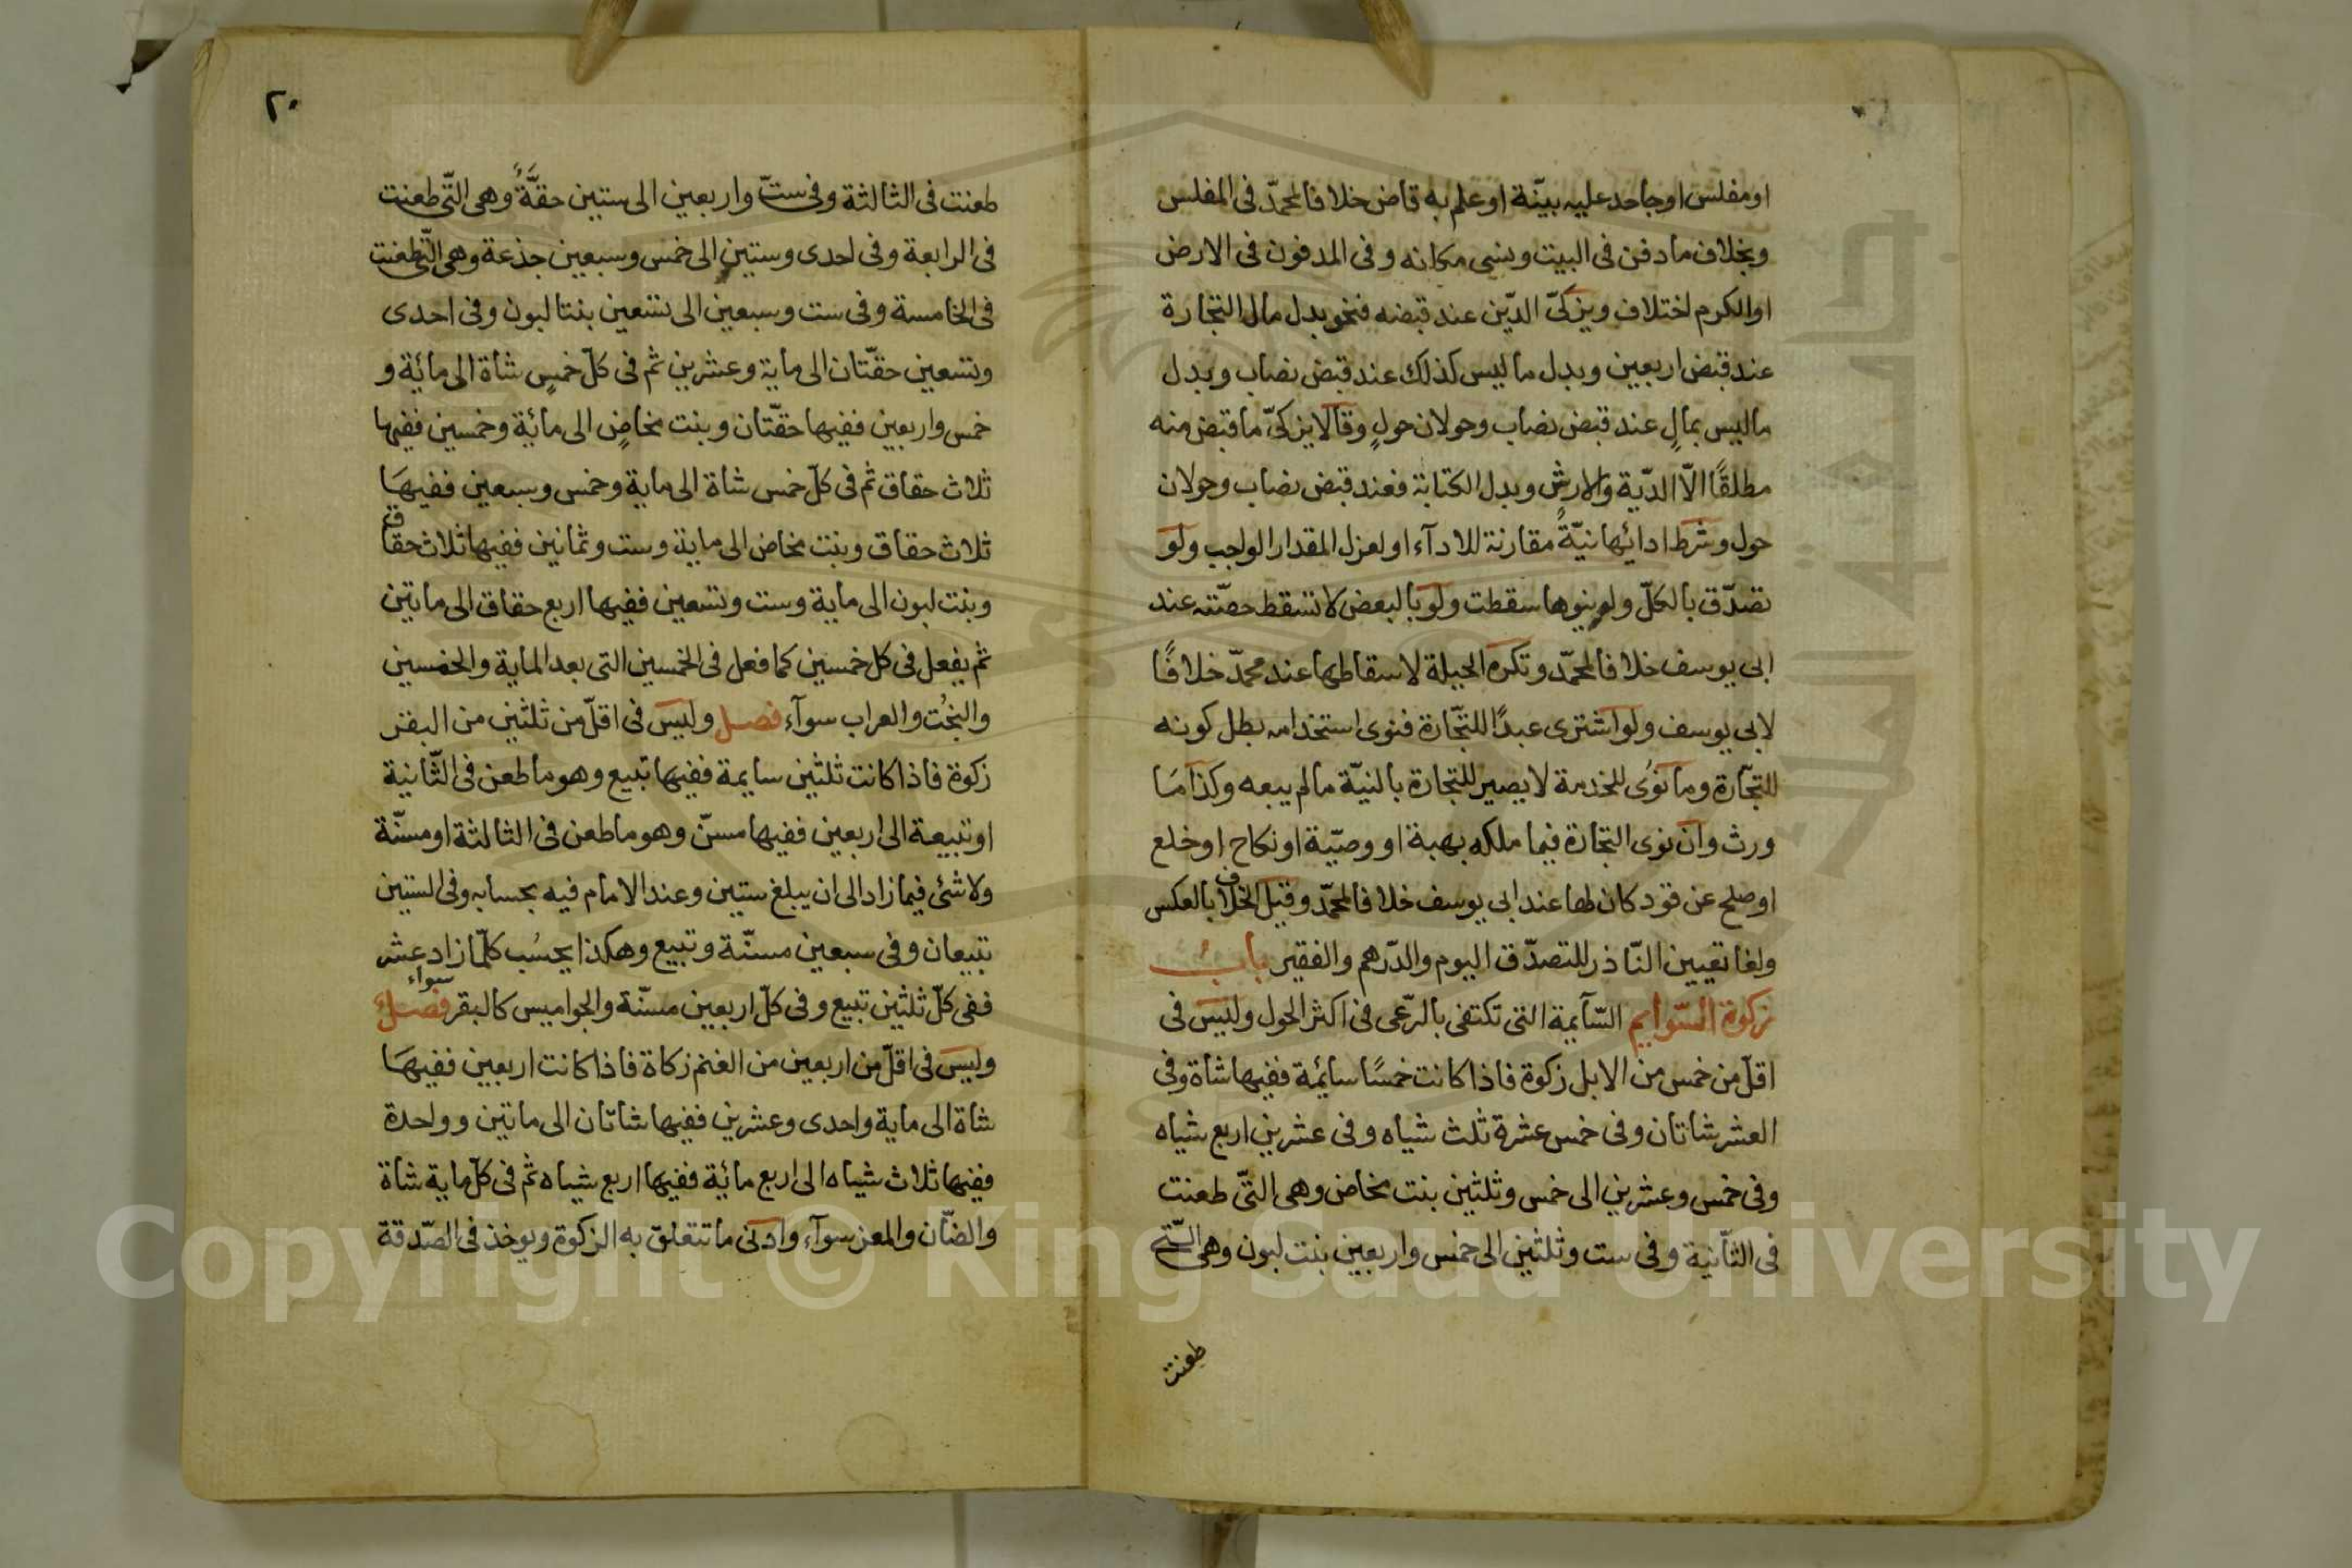 او مفلس او جاحد عليه بيّنة او علم به قاض خلافا لمحمّد فى المفلس
وبخلاف ما دفن فى البيت ونسى مكانه و فى المدفون فى الارض
او الكرم اختلاف ويزكىّ الدّين عند قبضه فنحو بدل مال التجارة
عند قبض اربعين وبدل ما ليس كذلك عند قبض نصاب وبدل
ما ليس بمالٍ عند قبض نصاب وحولان حولٍ وقالا يزكىّ ما قبض منه
مطلقًا الاّ الدّية والارش وبدل الكتابة فعند قبض نصاب وحولان
حول وشرط ادائها نيّةٌ مقارنة للادآء او لعزل المقدار الواجب ولو
تصدّق بالكلّ ولم ينوها سقطت ولو بالبعض لا تسقط حصّته عند
ابى يوسف خلافا لمحمّد وتكره الحيلة لاسقاطها عند محمدّ خلافًا
لابى يوسف ولو اشترى عبدًا للتّجارة فنوى استخدامه بطل كونه
للتجّارة وما نوى للخدمة لا يصير للتّجارة بالنيّة ما لم يبعه وكذا مَا
ورث وان نوى التجارة فيما ملكه بهبة او وصيّة او نكاح او خلع
او صلح عن قود كان لها عند ابى يوسف خلافا لمحمّد وقيل الخلاف بالعكس
ولغا تعيين النّاذر للتصدّق اليوم والدّرهم والفقير بابُ
زكوة السّوايم السّآيمة التى تكتفى بالرّعى فى اكثر الحول وليس فى
اقلّ من خمس من الابل زكوة فاذا كانت خمسًا سائمة ففيها شاة وفى
العشر شاتان و فى خمس عشرة ثلث شياه و فى عشرين اربع شياه
وفى خمس وعشرين الى خمس وثلثين بنت مخاض وهى التّى طعنت
فى الثّانية و فى ست وثلثين الى خمس واربعين بنت لبون وهى التّى
طعنت
٢٠
طعنت فى الثالثة وفى ستّ واربعين الى ستين حقّةٌ وهى التّى طعنت
فى الرابعة وفى احدى وستين الى خمس وسبعين جذعة وهى التّى طعنت
فى الخامسة وفى ست وسبعين الى تسعين بنتا لبون وفى احدى
وتسعين حقّتان الى ماية وعشرين ثم فى كلّ خمسٍ شاة الى مائة و
خمس واربعين ففيها حقّتان وبنت مخاضٍ الى مائة وخمسين ففيها
ثلاث حقاق ثم فى كلّ خمس شاة الى ماية وخمس وسبعين ففيهَا
ثلاث حقاق وبنت مخاض الى ماية وست وثمانين ففيها ثلاث حقاق
وبنت لبون الى ماية وست وتسعين ففيها اربع حقاق الى مايتين
ثم يفعل فى كل خمسين كما فعل فى الخمسين التى بعد الماية والخمسين
والبخُت والعراب سوآء فصل وليس فى اقلّ من ثلثين من البقر
زكوة فاذا كانت ثلثين سايمة ففيها تبيع وهو ما طعن فى الثّانية
او تبيعة الى اربعين ففيها مسنّ وهو ما طعن فى الثالثة او مسنّة
ولا شئ فيما زاد الى ان يبلغ ستين وعند الامام فيه بحسابه وفى الستين
تبيعان وفى سبعين مسنّة وتبيع وهكذا يحسُب كلّما زاد عشر
ففى كلّ ثلثين تبيع وفى كلّ اربعين مسنّة والجواميس كالبقر سواء فصل
وليس فى اقلّ من اربعين من الغنم زكاة فاذا كانت اربعين ففيهَا
شاة الى ماية واحدى وعشرين ففيها شاتان الى ماتين وواحدة
ففيها ثلاث شياه الى اربع مائة ففيها اربع شياه ثم فى كلّ ماية شاة
والضّان والمعز سوآء وادنى ما تتعلق به الزكوة ويوخذ فى الصّدقة
Copyright © King Saud University